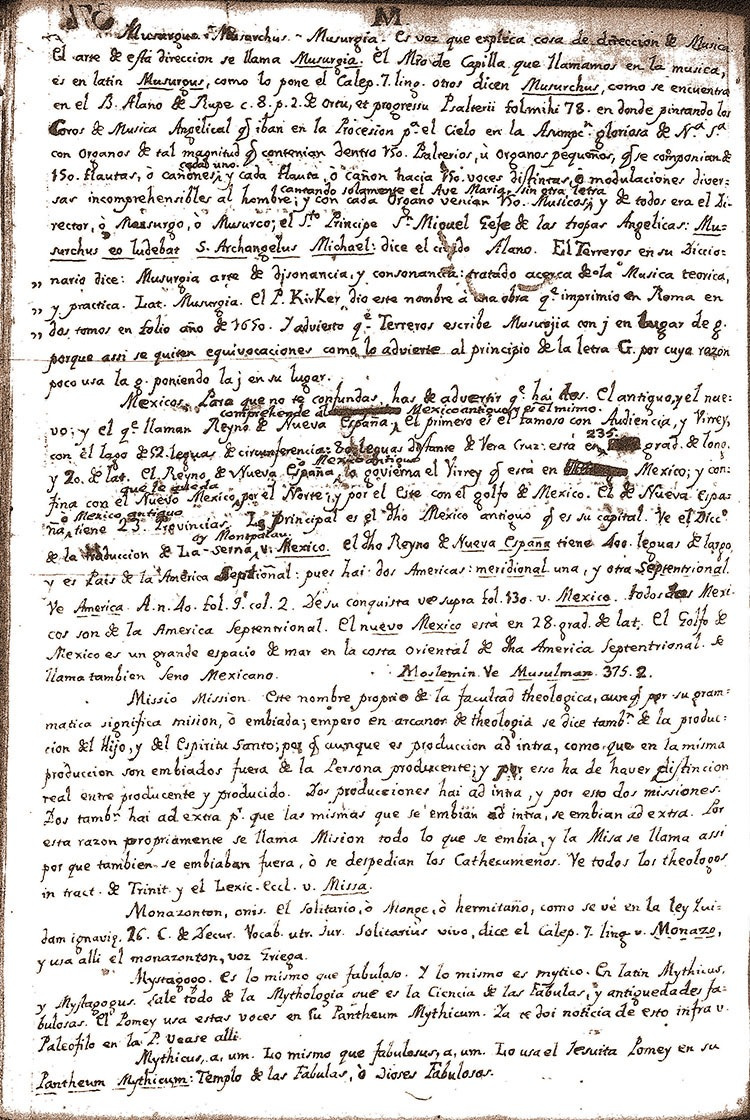 M.
Musurgus. Musurchus. - Musurgia. Es voz que explica cosa de direccion de Musica
El arte de esta direccion se llama Musurgia. El Mro de Capilla que llamamos en la musica,
es en latin Musurgus, como lo pone el Calep. 7. ling. otros dicen Musurchus, como se encuentra
en el B. Alano de Rupe c. 8. p. 2. de Ortu, et progressu Psalterii fol mihi 78. en donde pintando los
Coros de Musica Angelical q iban en la Procesion pa el Cielo en la Asumpcn gloriosa de Na Sa
con Organos de tal magnitud q contenian dentro 150. Psalterios, ù Organos pequeños, q se componian de
cada uno.
150. flautas, ò cañones; y cada flauta, ò cañon hacia 150. voces distintas, ò modulaciones diver-
cantando solamente el Ave Maria, sin otra letra
sas incomprehensibles al hombre; y con cada Organo venian 150. Musicos; y de todos era el Di-
rector, ò Musurgo, ò Musurco; el Sto Principe Sn Miguel Gefe de las tropas Angelicas: Mu-
surchus eo ludebat S. Archangelus Michael: dice el citado Alano. El Terreros en su Diccio-
„ nario dice: Musurgia arte de disonancia, y consonancia: tratado acerca de la Musica teorica,
„ y practica. Lat. Musurgia. El P. Kirker dio este nombre à una obra qe imprimio en Roma en
„ dos tomos en folio año de 1650. Y advierto qe Terreros escribe Musurjia con j en lugar de g.
porque assi se quiten equivocaciones como lo advierte al principio de la letra G. por cuya razon
poco usa la g. poniendo la j en su lugar.
Mexicos. Para que no te confundas, has de advertir qe hai dos. El antiguo, y el nue-
comprehende al Mexico antiguo, y es el mismo.
vo; y el qe llaman Reyno de Nueva España, El primero es el famoso con Audiencia, y Virrey,
235.
con el lago de 52. leguas de circunferencia: 80. leguas distante de Vera Cruz: està en grad. de long.
ò Mexico antiguo
y 20. de lat. El Reyno de Nueva España lo govierna el Virrey q està en Mexico; y con-
fina con el Nuevo Mexico por el Norte; y por el Este con el golfo de Mexico. El de Nueva Espa-
ò Mexico antiguo
ña, tiene 23. Provincias. La principal es el dho Mexico antiguo q es su capital. Ve el Dicco
oy Montpalau
de la traduccion de La-Serna, v. Mexico. el dho Reyno de Nueva España tiene 400. leguas de largo,
y es Pais de la America Septional: pues hai dos Americas: meridional una, y otra Septentrional.
Ve America. A. n. 40. fol. 9. col. 2. De su conquista ve supra fol. 130. v. Mexico. todos los Mexi-
cos son de la America Septentrional. El nuevo Mexico està en 28. grad. de lat. El Golfo de
Mexico es un grande espacio de mar en la costa Oriental de dha America Septentrional. Se
llama tambien Seno Mexicano. Moslemin. Ve Musulman. 375. 2.
Missio Mission. Este nombre proprio de la facultad theologica, aunq por su gram-
matica significa mision, ò embiada; empero en arcanos de theologia se dice tambn de la produc-
cion del Hijo, y del Espiritu Santo; por q aunque es produccion ad intra, como que en la misma
produccion son embiados fuera de la Persona producente; y por esso ha de haver distincion
real entre producente y producido. Dos producciones hai ad intra, y por esto dos missiones.
Dos tambn hai ad extra pr. que las mismas que se embian ad intra, se embian ad extra. Por
esta razon propriamente se llama Mision todo lo que se embia, y la Misa se llama assi
por que tambien se embiaban fuera, ò se despedian los Cathecumenos. Ve todos los theologos
in tract. de Trinit. y el Lexic. Eccl. v. Missa.
Monazonton, onis. El solitario, ò Monge, ò hermitaño, como se vè en la ley Qui-
dam ignaviæ. 26. C. de Decur. Vocab. utr. Jur. Solitarius vivo, dice el Calep. 7. ling v. Monazo,
y usa alli el monazonton, voz Griega.
Mystagogo. Es lo mismo que fabuloso. Y lo mismo es mytico. En latin Mythicus,
y Mystagogus. Sale todo de la Mythologia que es la Ciencia de las Fabulas, y antiguedades fa-
bulosas. El Pomey usa estas voces en su Pantheum Mythicum. Ya te doi noticia de esto infra v.
Paleofilo en la P. vease alli.
Mythicus, a, um. Lo mismo que fabulosus, a, um. Lo usa el Jesuita Pomey en su
Pantheum Mythicum: Templo de las Fabulas, ò Dioses Fabulosos.